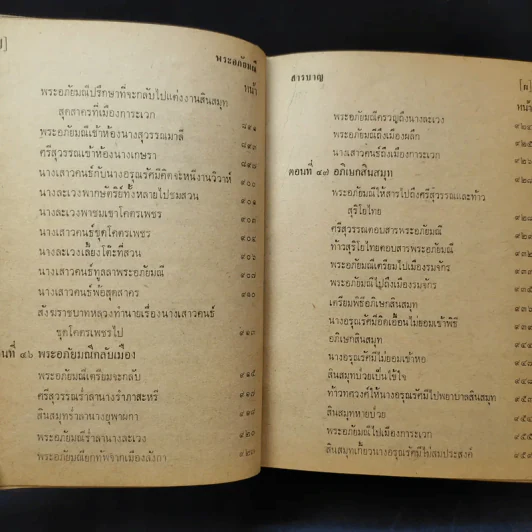 พระอภัยมณี
หน้า
พระอภัยมณีปรึกษาที่จะกลับไปแต่งงานสินสมุท
สุดสาครที่เมืองการะเวก ๘๙๑
พระอภัยมณีเข้าห้องนางสุวรรณมาลี ๘๙๓
ศรีสุวรรณเข้าห้องนางเกษรา ๘๙๘
นางเสาวคนธ์กับนางอรุณรัศมีคิดจะหนีงานวิวาห์ ๙๐๐
นางละเวงพากษัตริย์ทั้งหลายไปชมสวน ๙๐๑
นางละเวงพาชมเขาโคตรเพชร ๙๐๓
นางเสาวคนธ์ขุดโคตรเพชร ๙๐๔
นางละเวงเลี้ยงโต๊ะที่สวน ๙๐๖
นางเสาวคนธ์ทูลลาพระอภัยมณี ๙๐๘
นางเสาวคนธ์พ้อสุดสาคร ๙๑๐
สังฆราชบาทหลวงทำนายเรื่องนางเสาวคนธ์
ขุดโคตรเพชรไป ๙๑๓
นที่ ๔๖ พระอภัยมณีกลับเมือง
พระอภัยมณีเตรียมจะกลับ ๙๑๕
ศรีสุวรรณร่ำลานางรำภาสะหรี ๙๑๗
สินสมุทร่ำลานางยุพาผกา ๙๑๘
พระอภัยมณีร่ำลานางละเวง ๙๒๐
พระอภัยมณียกทัพจากเมืองลังกา ๙๒๑
สารบาญ
[ฅ]
พระอภัยมณีครวญถึงนางละเวง
พระอภัยมณีถึงเมืองผลึก
นางเสาวคนธ์ถึงเมืองการะเวก
ตอนที่ ๔๗ อภิเษกสินสมุท
พระอภัยมณีให้สารไปถึงศรีสุวรรณและท้าว
สุริโยไทย
ศรีสุวรรณตอบสารพระอภัยมณี
ท้าวสุริโยไทยตอบสารพระอภัยมณี
พระอภัยมณีเตรียมไปเมืองรมจักร
พระอภัยมณีไปถึงเมืองรมจักร
เตรียมพิธีอภิเษกสินสมุท
นางอรุณรัศมีบิดเอื้อนไม่ยอมเข้าพิธี
อภิเษกสินสมุท
นางอรุณรัศมีไม่ยอมเข้าหอ
สินสมุทป่วยเป็นไข้ใจ
ท้าวทศวงศ์ให้นางอรุณรัศมีไปพยาบาลสินสมุท
สินสมุทหายป่วย
พระอภัยมณีไปเมืองการะเวก
สินสมุทเกี้ยวนางอรุณรัศมีไม่สมประสงค์